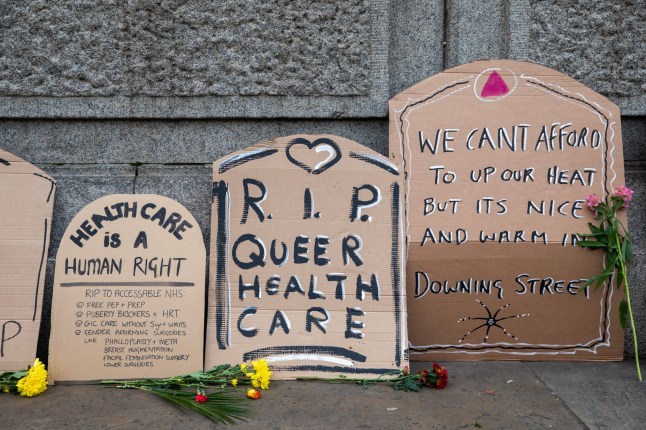 P
HEALTH CARE
is A
HUMAN RIGHT
RIP TO ACCESSABLE NHS:
FREE PEP + PREP
PUBERTY BLOCKERS + HRT
GIC CARE WITHOUT 5yr+ WAITS
GENDER AFFIRMING SURGERIES
LIKE PHALLOPLASTY + META
BREAST AUGMENTATION
FACIAL FEMINISATION SURGERY
LOWER SURGERIES
R. I. P.
QUEER
HEALTH
CARE
WE CANT AFFORD
TO UP OUR HEAT
BUT ITS NICE
AND WARM IN
DOWNING STREET